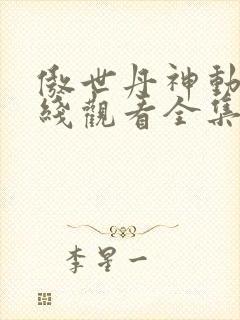 傲世丹神動
綫觀看全集
李星一